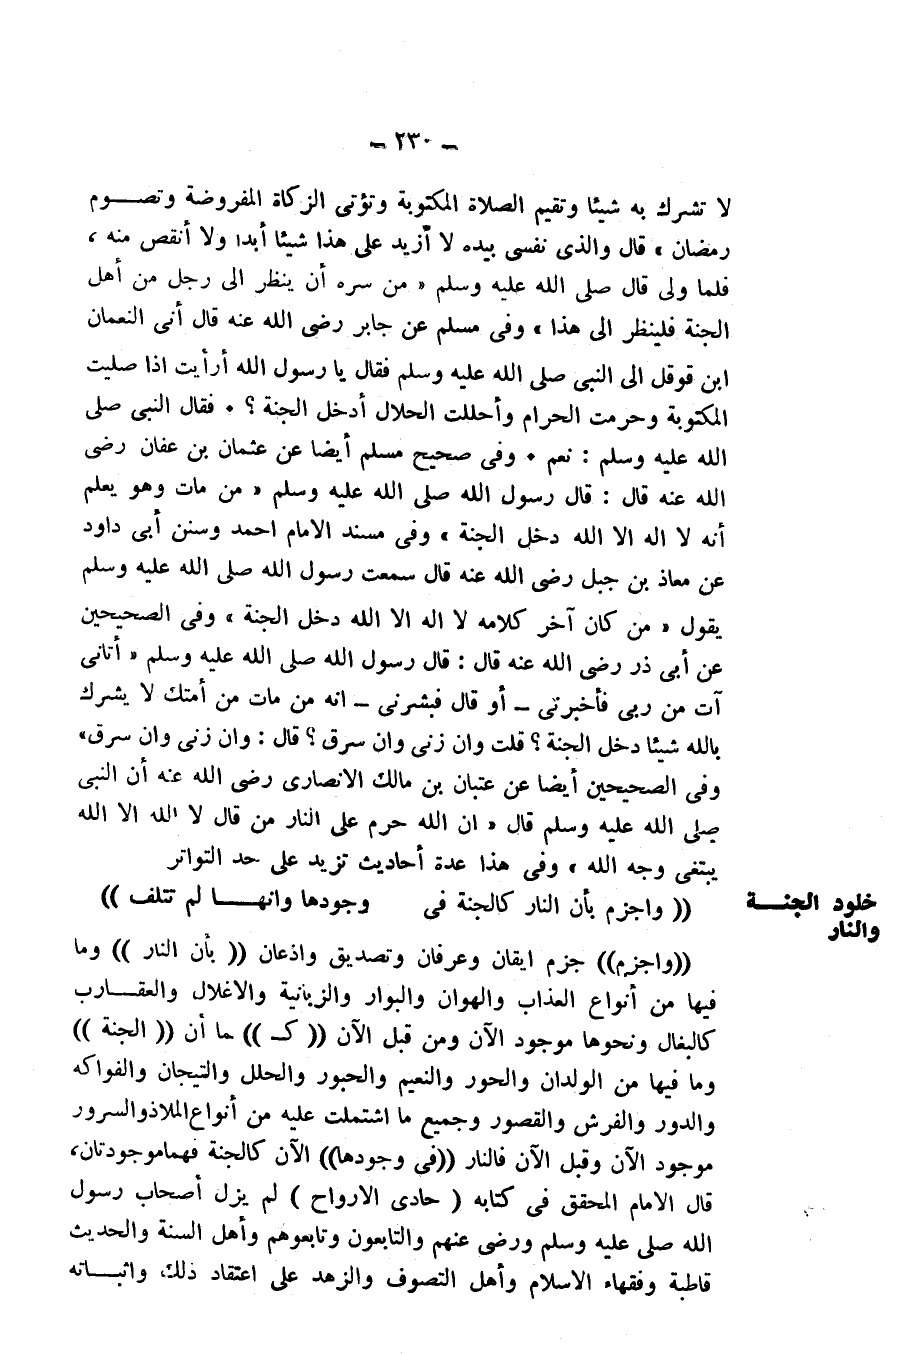 ـ ٢٣٠ ـ
لا تشرك به شيئا وتقيم الصلاة المكتوبة وتؤتى الزكاة المفروضة وتصـــوم
رمضان » قال والذى نفسى بيده لا أزيد على هذا شيئا أبدا ولا أنقص منه ،
فلما ولى قال صلى الله عليه وسلم « من سره أن ينظر الى رجل من أهل
الجنة فلينظر الى هذا » وفى مسلم عن جابر رضى الله عنه قال أتى النعمان
ابن قوقل الى النبى صلى الله عليه وسلم فقال يا رسول الله أرأيت اذا صليت
المكتوبة وحرمت الحرام وأحللت الحلال أدخل الجنة ؟ ٠ فقال النبى صلى
الله عليه وسلم : نعم ٠ وفى صحيح مسلم أيضا عن عثمان بن عفان رضى
الله عنه قال : قال رسول الله صلى الله عليه وسلم « من مات وهو يعلم
أنه لا اله الا الله دخل الجنة » وفى مسند الامام احمد وسنن أبى داود
عن معاذ بن جبل رضى الله عنه قال سمعت رسول الله صلى الله عليه وسلم
يقول « من كان آخر كلامه لا اله الا الله دخل الجنة » وفى الصحيحين
عن أبى ذر رضى الله عنه قال : قال رسول الله صلى الله عليه وسلم « أتانى
آت من ربى فأخبرنى ـ أو قال فبشرنى ـ انه من مات من أمتك لا يشرك
بالله شيئا دخل الجنة ؟ قلت وان زنى وان سرق ؟ قال : وان زنى وان سرق»
وفى الصحيحين أيضا عن عتبان بن مالك الانصارى رضى الله عنه أن النبى
صلى الله عليه وسلم قال « ان الله حرم على النار من قال لا اله الا الله
يبتغى وجه الله » وفى هذا عدة أحاديث تزيد على حد التواتر
خلود الجنـــة
والنار
(( واجزم بأن النار كالجنة فى وجودها وانهـــا لم تتلف ))
((واجزم)) جزم ايقان وعرفان وتصديق واذعان (( بأن النار )) وما
فيها من أنواع العذاب والهوان والبوار والزبانية والاغلال والعقـــارب
كالبغال ونحوها موجود الآن ومن قبل الآن (( كـ )) ما أن (( الجنة ))
وما فيها من الولدان والحور والنعيم والحبور والحلل والتيجان والفواكه
والدور والفرش والقصور وجميع ما اشتملت عليه من أنواع الملاذ والسرور
موجود الآن وقبل الآن فالنار ((فى وجودها)) الآن كالجنة فهما موجودتان،
قال الامام المحقق فى كتابه ( حادى الارواح ) لم يزل أصحاب رسول
الله صلى عليه وسلم ورضى عنهم والتابعون وتابعوهم وأهل السنة والحديث
قاطبة وفقهاء الاسلام وأهل التصوف والزهد على اعتقاد ذلك، واثبـــاته